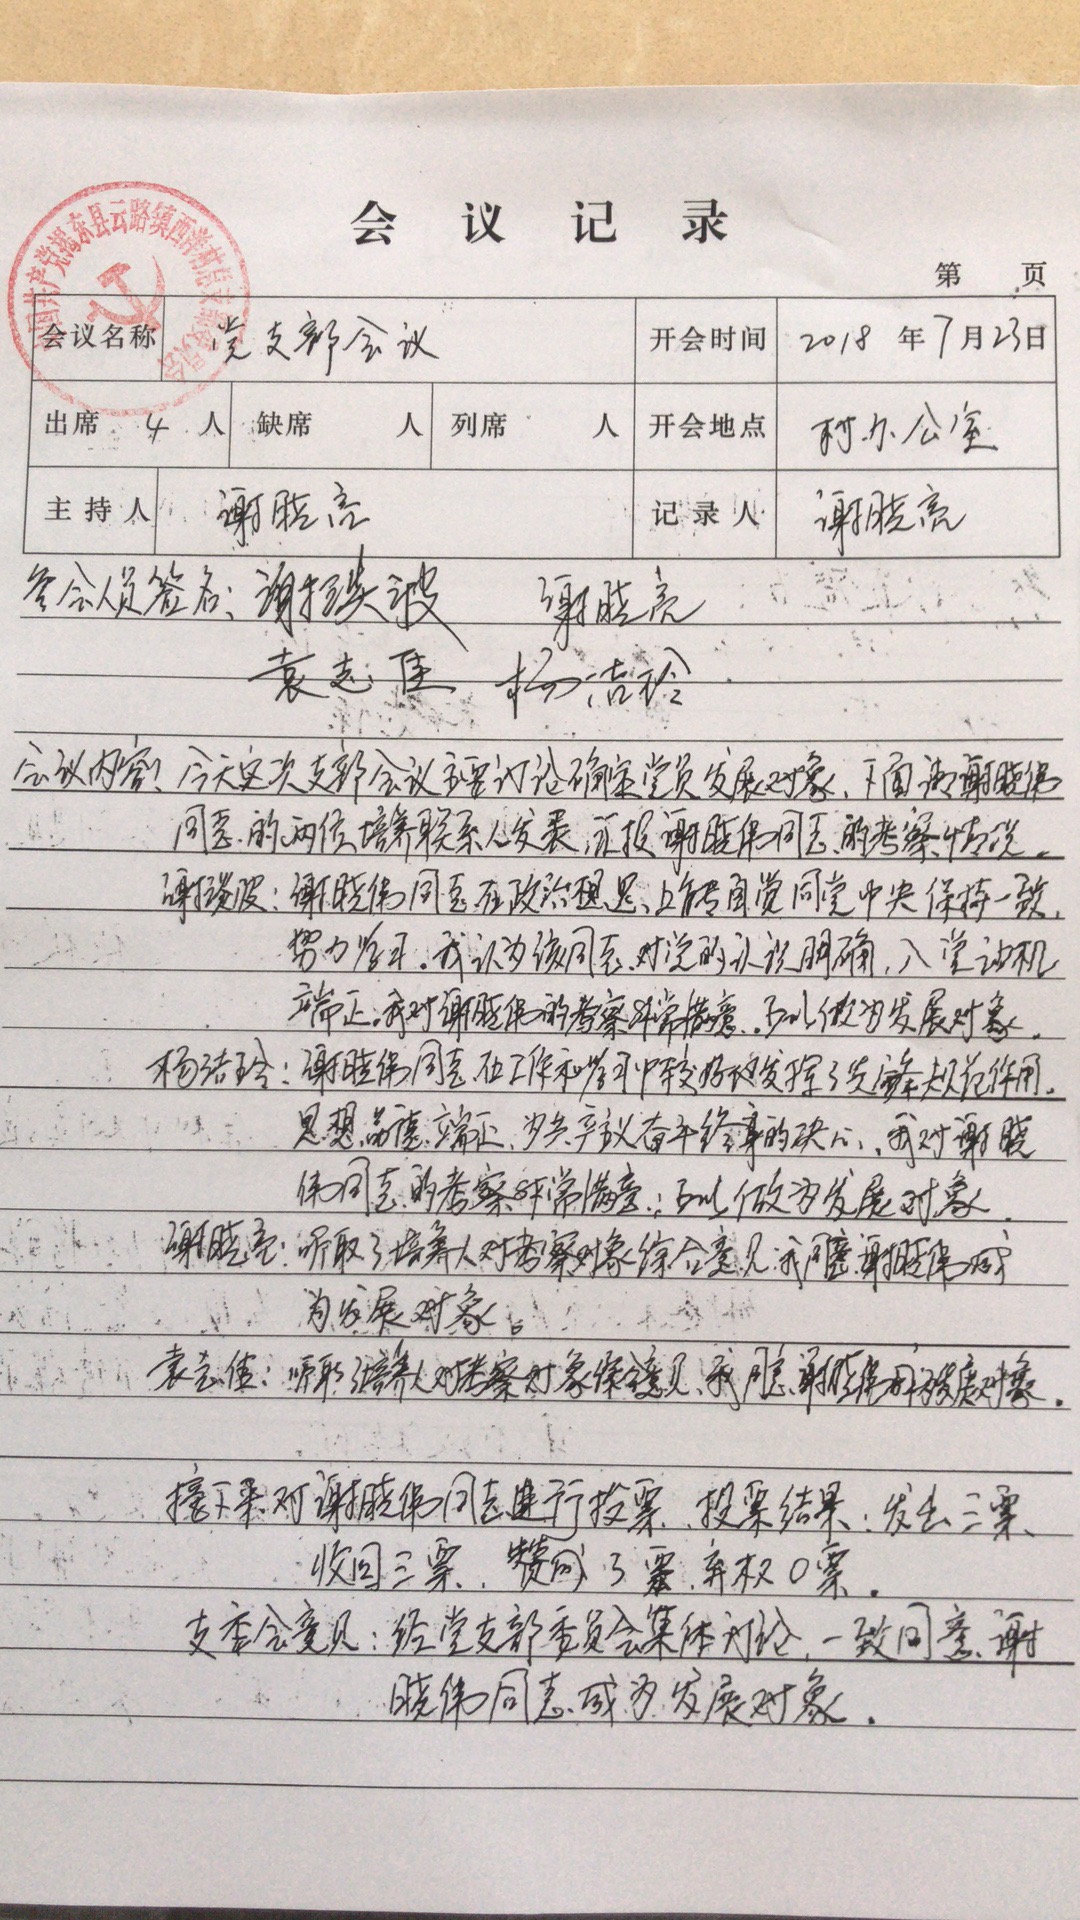 中国共产党揭东县云路镇西洋村总支部委员会
会议记录
第 页
会议名称 党支部会议 开会时间 2018 年 7 月 23 日
出席 4 人 缺席 人 列席 人 开会地点 村办公室
主持人 谢晓亮 记录人 谢晓亮
参会人员签名: 谢 波 谢晓亮
袁志 杨洁玲
会议内容: 今天这次支部会议主要讨论确定党员发展对象、下面请谢晓伟
同志的两位培养联系人发表、汇报谢晓伟同志的考察情况。
谢 波: 谢晓伟同志在政治思想上能自觉同党中央保持一致,
努力学习。我认为该同志对党的认识明确, 入党动机
端正。我对谢晓伟的考察非常满意、可以做为发展对象。
杨洁玲: 谢晓伟同志在工作和学习中较好地发挥了先锋 范作用。
思想品德端正, 为共产主义奋斗终身的决心、我对谢晓
伟同志的考察非常满意; 可以做为发展对象。
谢晓亮: 听取了培养人对考察对象综合意见、我同意谢晓伟成
为发展对象。
袁志: 听取了培养人对考察对象综合意见、我同意谢晓伟 发展对象。
接下来对谢晓伟同志进行投票、投票结果: 发出三票、
收回三票、赞成 3 票、弃权 0 票。
支委会意见: 经党支部委员会集体讨论, 一致同意谢
晓伟同志成为发展对象。